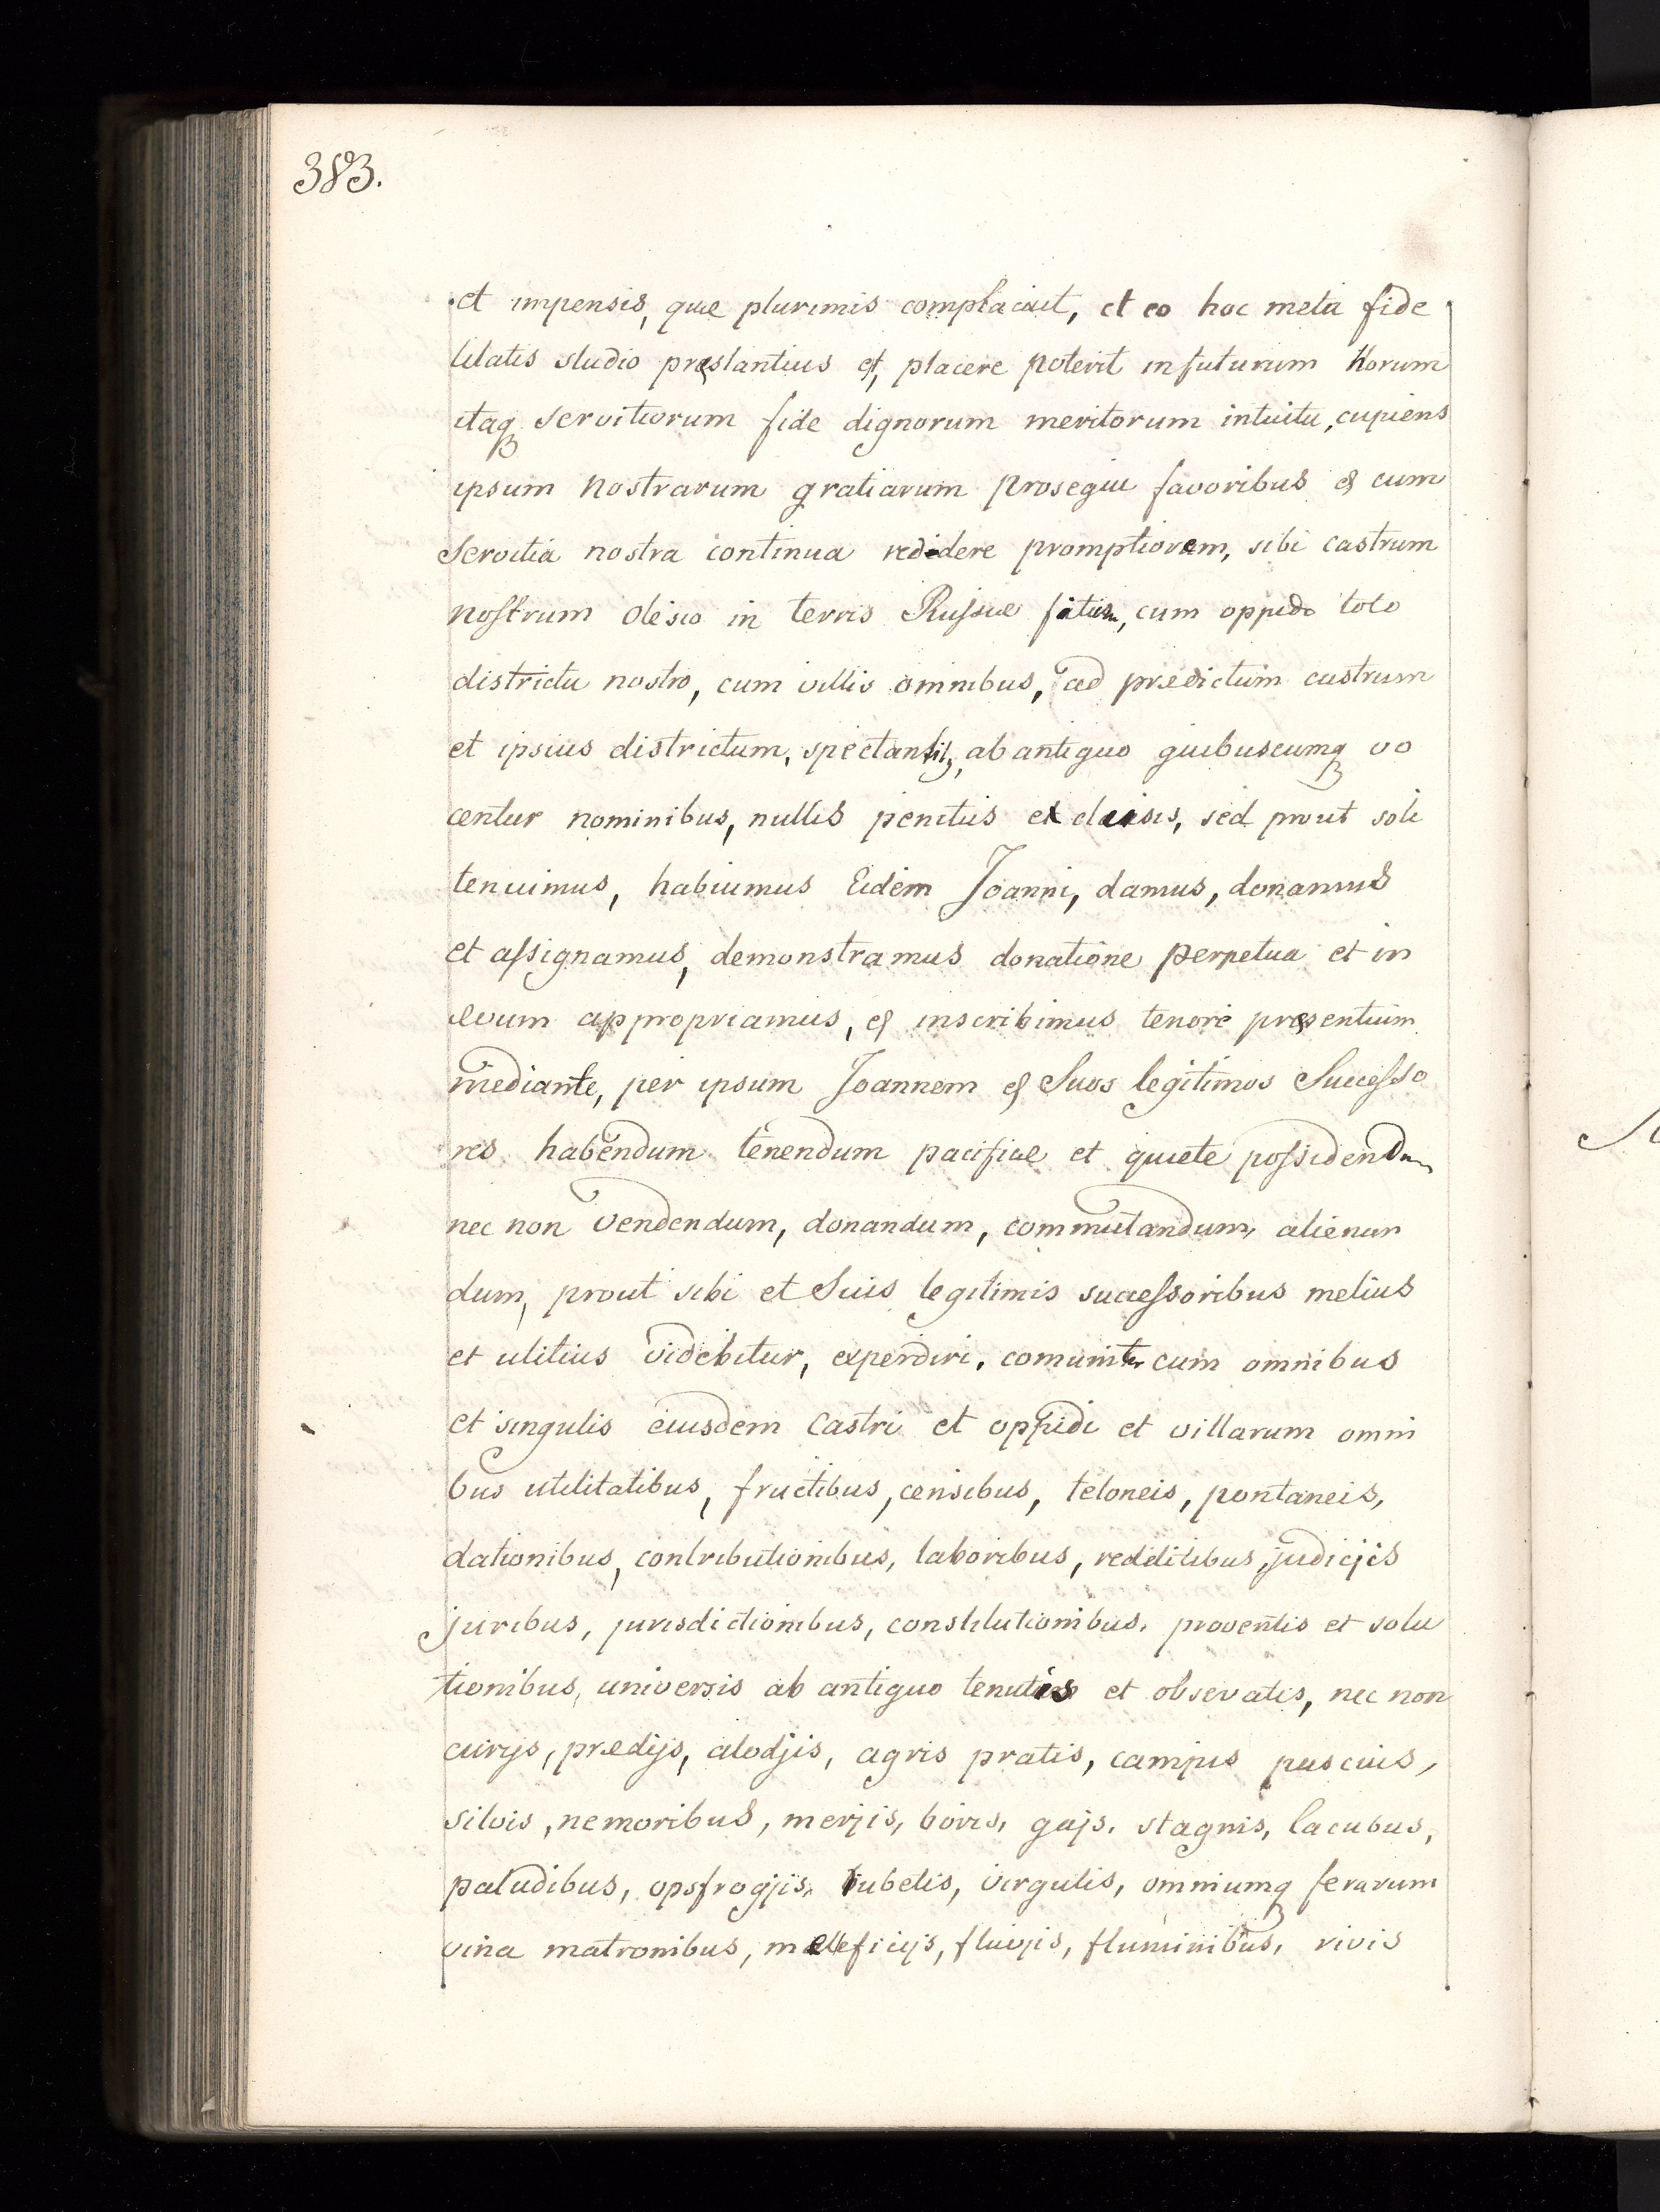 383.
et impensis, quæ plurimis complacuit, et eo hoc meta fide
litatis studio præstantius et, placere poterit in futurum Horum
itaq servitiorum fide dignorum meritorum intuitu, cupiens
ipsum nostrarum gratiarum prosequi favoribus et cum
Servitia nostra continua reddere promptiorem, sibi castrum
nostrum Olesco in terris Russiæ situm, cum oppido toto
districtu nostro, cum villis omnibus, ad prædictum castrum
et ipsius districtum, spectantib, ab antiquo quibuscumq vo
centur nominibus, nullis penitus exclusis, sed prout soli
tenuimus, habuimus Eidem Joanni, damus, donamus
et assignamus, demonstramus donatione perpetua et in
ævum appropriamus, et inscribimus tenore præsentium
mediante, per ipsum Joannem et Suos legitimos Successo
res habendum tenendum pacifice et quiete possidendum
nec non vendendum, donandum, commutandum, alienan
dum, prout sibi et Suis legitimis successoribus melius
et utilius videbitur, expendiri, comuniter cum omnibus
et singulis eiusdem Castri et oppidi et villarum omni
bus utilitatibus, fructibus, censibus, teloneis, pontaneis,
dationibus, contributionibus, laboribus, redditibus, judicjis
juribus, jurisdictionibus, constitutionibus, proventis et solu
tionibus, universis ab antiquo tenutis et observatis, nec non
curijs, prædijs, alodjis, agris pratis, campis pascuis,
silvis, nemoribus, merjis, boris, gajs, stagnis, lacubus,
paludibus, opsfrogjis, rubetis, virgultis, omniumq ferarum
vina matronibus, mellificijs, fluvjis, fluminibus, rivis